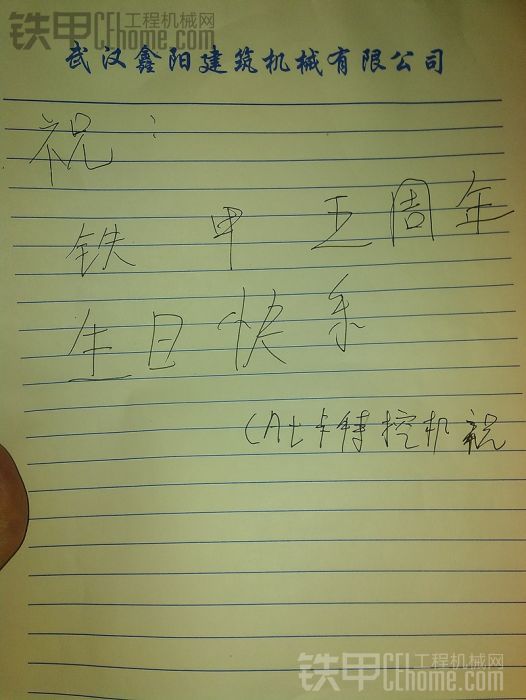 铁甲 工程机械网
CEhome.com
武汉鑫阳建筑机械有限公司
祝:
铁甲五周年
生日快乐
(At卡特挖机祝
铁甲 工程机械网
CEhome.com